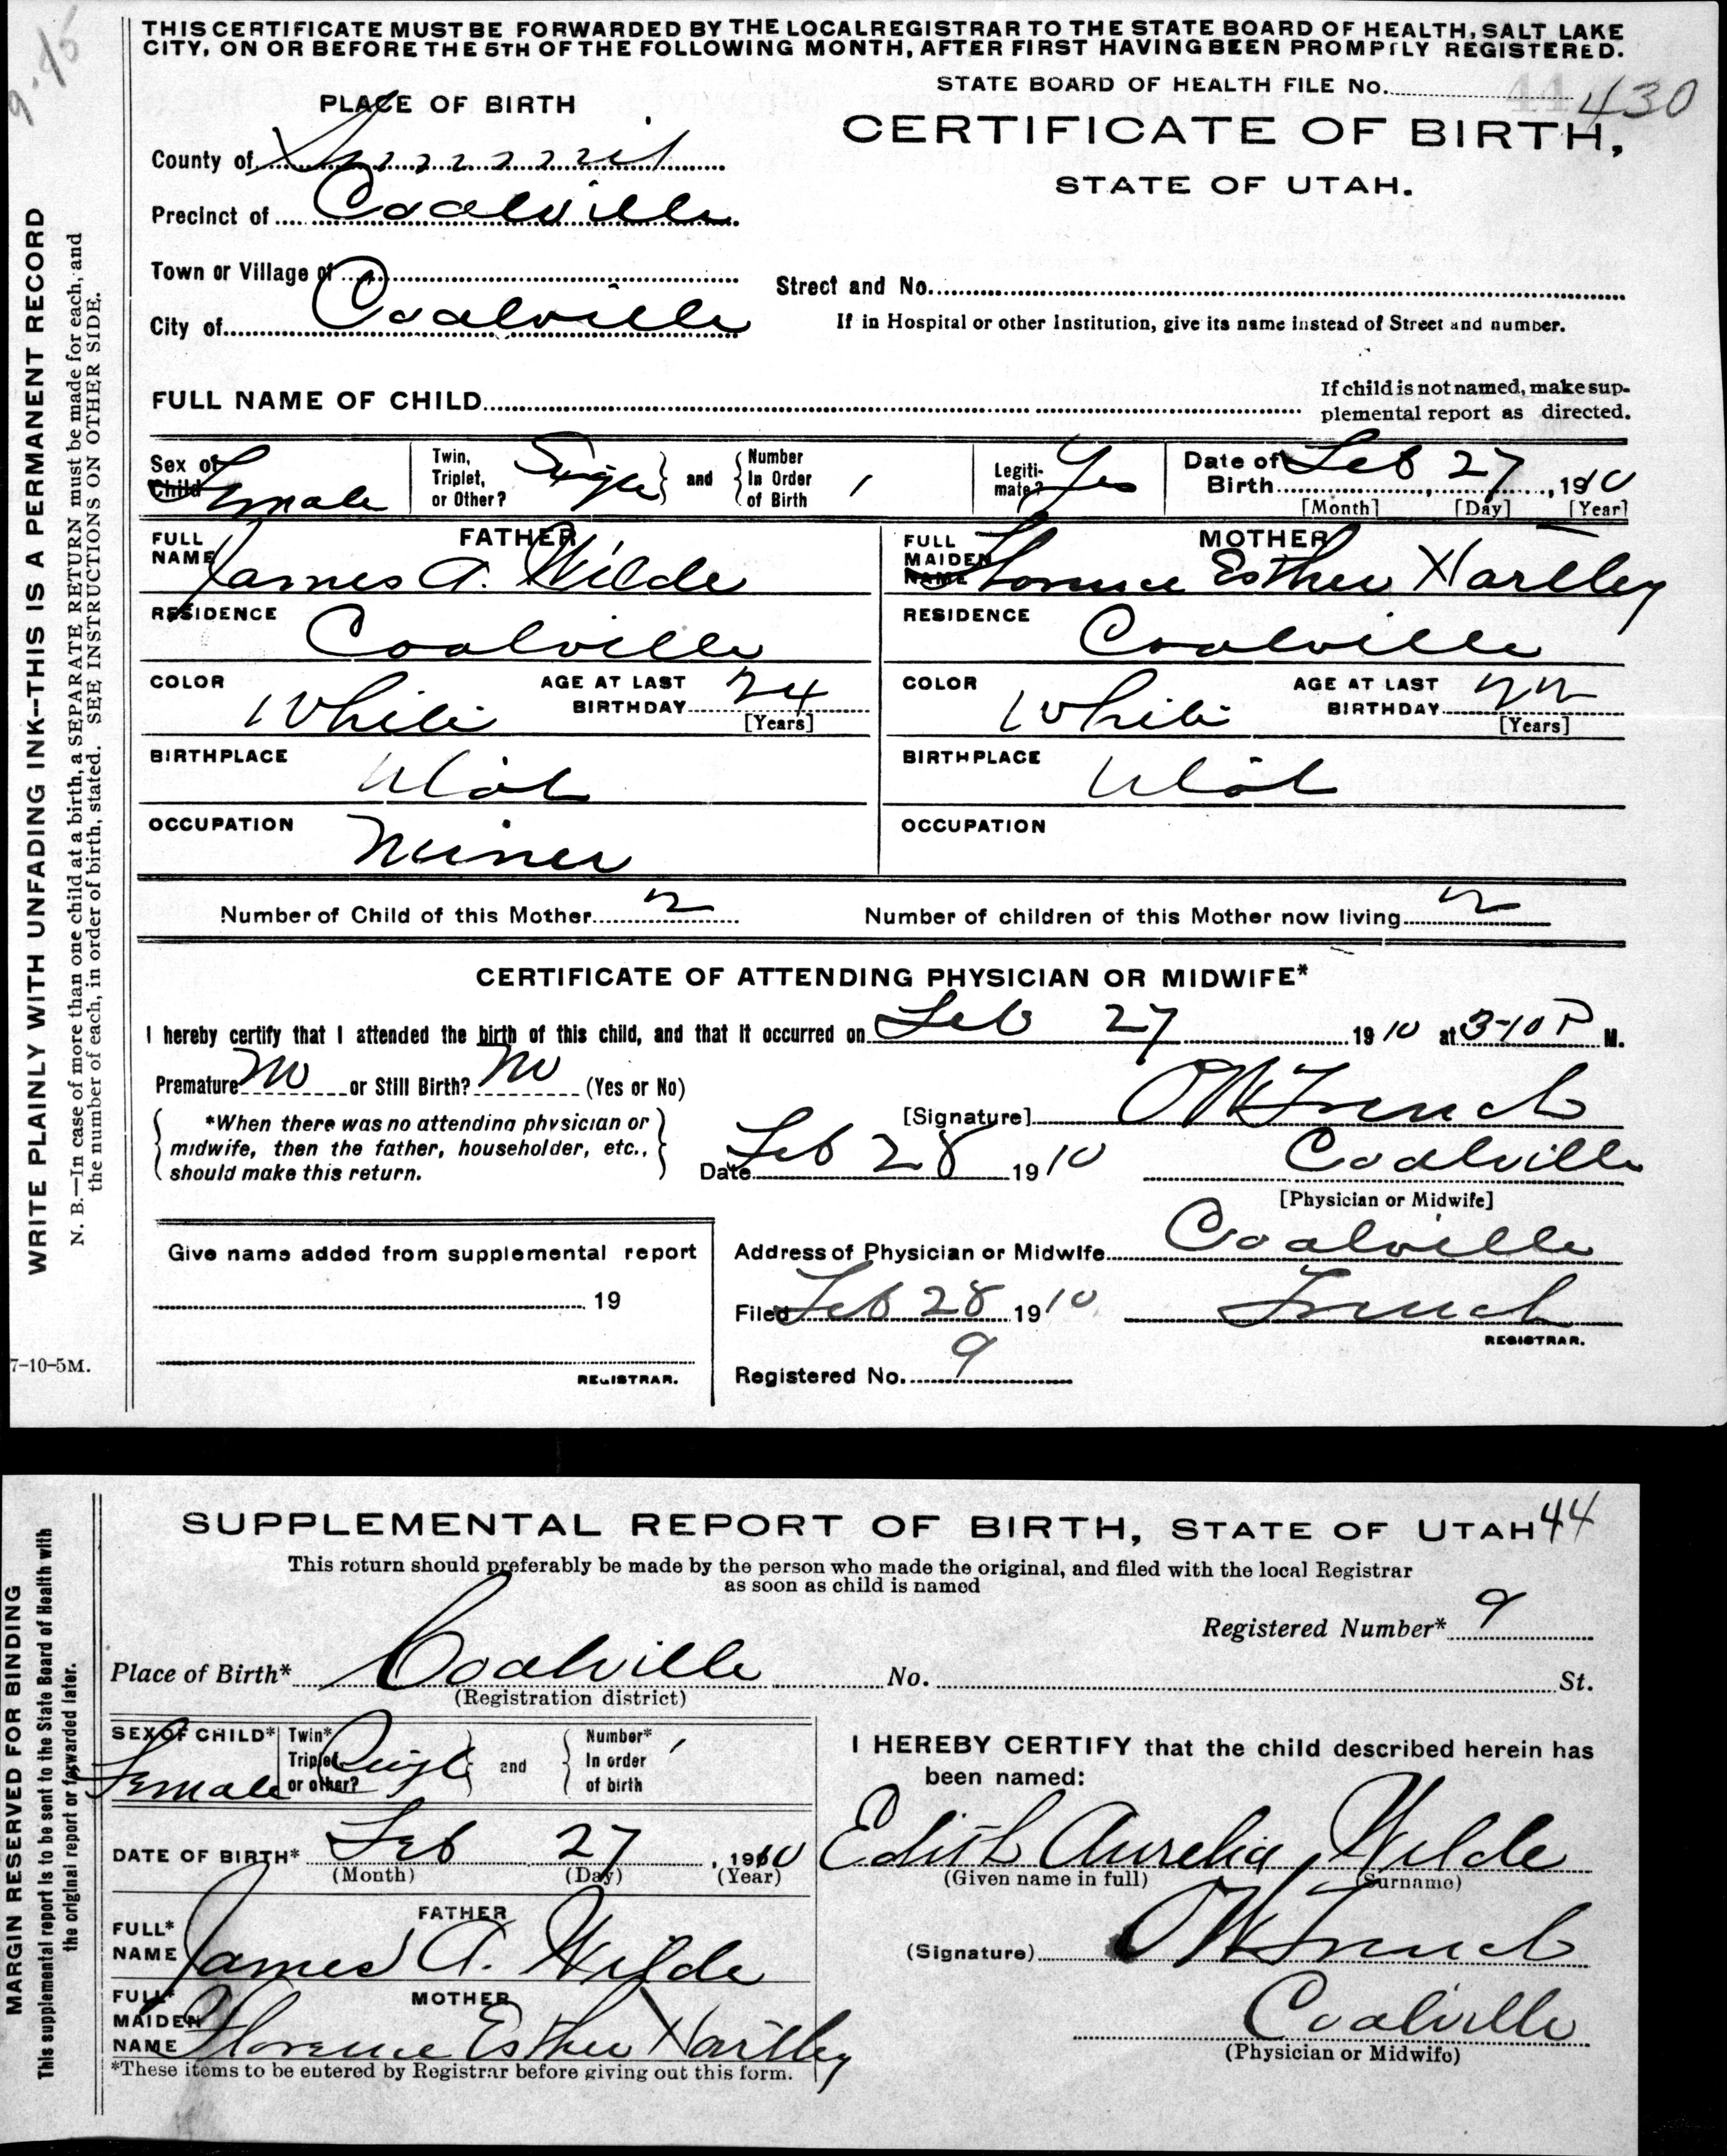 9.15
THIS CERTIFICATE MUST BE FORWARDED BY THE LOCAL REGISTRAR TO THE STATE BOARD OF HEALTH, SALT LAKE
CITY, ON OR BEFORE THE 5TH OF THE FOLLOWING MONTH, AFTER FIRST HAVING BEEN PROMPTLY REGISTERED.
STATE BOARD OF HEALTH FILE No. 430
PLACE OF BIRTH
CERTIFICATE OF BIRTH,
STATE OF UTAH.
County of Summit
Precinct of Coalville
Town or Village of
City of Coalville
Street and No.
If in Hospital or other Institution, give its name instead of Street and number.
FULL NAME OF CHILD
If child is not named, make sup-
plemental report as directed.
Sex of Child Female
Twin, Triplet, or Other? Single and Number In Order of Birth 1
Legiti-mate? Yes
Date of Birth Feb 27, 1910
[Month] [Day] [Year]
FATHER
FULL NAME James A. Wilde
MOTHER
FULL MAIDEN NAME Florence Esther Hartley
RESIDENCE Coalville
RESIDENCE Coalville
COLOR White AGE AT LAST BIRTHDAY 24 [Years]
COLOR White AGE AT LAST BIRTHDAY 22 [Years]
BIRTHPLACE Utah
BIRTHPLACE Utah
OCCUPATION Miner
OCCUPATION
Number of Child of this Mother 2 Number of children of this Mother now living 2
CERTIFICATE OF ATTENDING PHYSICIAN OR MIDWIFE*
I hereby certify that I attended the birth of this child, and that it occurred on Feb 27 1910 at 3-10 P M.
Premature No or Still Birth? No (Yes or No)
*When there was no attending physician or
midwife, then the father, householder, etc.,
should make this return.
[Signature] French
Date Feb 28 1910 Coalville
[Physician or Midwife]
Give name added from supplemental report
19
REGISTRAR.
Address of Physician or Midwife Coalville
Filed Feb 28 1910 French
REGISTRAR.
Registered No. 9
WRITE PLAINLY WITH UNFADING INK--THIS IS A PERMANENT RECORD
N. B.—In case of more than one child at a birth, a SEPARATE RETURN must be made for each, and
the number of each, in order of birth, stated. SEE INSTRUCTIONS ON OTHER SIDE.
7-10-5M.
SUPPLEMENTAL REPORT OF BIRTH, STATE OF UTAH 44
This return should preferably be made by the person who made the original, and filed with the local Registrar
as soon as child is named
Registered Number* 9
Place of Birth* Coalville No. St.
(Registration district)
SEX OF CHILD* Female
Twin* Triplet or other? Single and Number* In order of birth 1
DATE OF BIRTH* Feb 27, 1910
(Month) (Day) (Year)
FATHER
FULL* NAME James A. Wilde
MOTHER
FULL* MAIDEN NAME Florence Esther Hartley
*These items to be entered by Registrar before giving out this form.
I HEREBY CERTIFY that the child described herein has
been named:
Edith Aurelia, Wilde
(Given name in full) (Surname)
(Signature) French
Coalville
(Physician or Midwife)
MARGIN RESERVED FOR BINDING
This supplemental report is to be sent to the State Board of Health with
the original report or forwarded later.